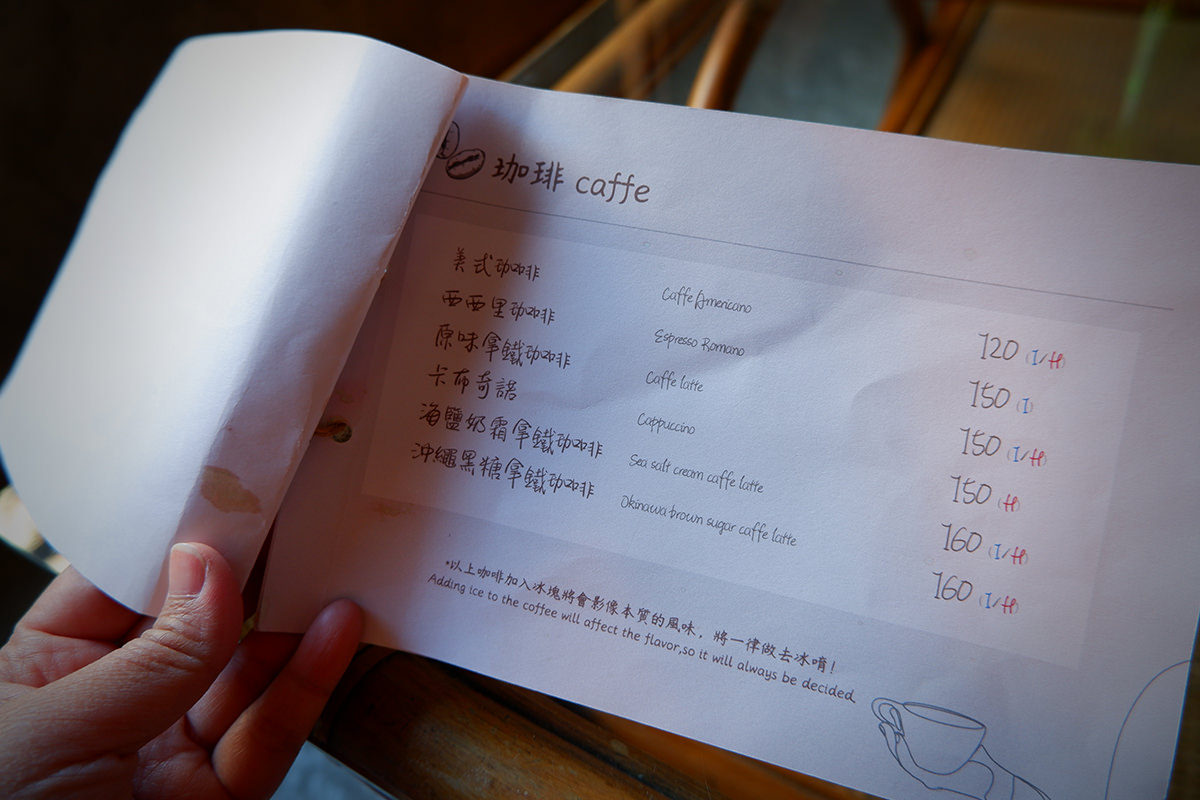 珈琲 caffe
美式珈琲 Caffe Americano 120 (I/H)
西西里珈琲 Espresso Romano 150 (I)
原味拿鐵珈琲 Caffe latte 150 (I/H)
卡布奇諾 Cappuccino 150 (H)
海鹽奶霜拿鐵珈琲 Sea salt cream caffe latte 160 (I/H)
沖繩黑糖拿鐵珈琲 Okinawa brown sugar caffe latte 160 (I/H)
*以上咖啡加入冰塊將會影像本質的風味，將一律做去冰唷！
Adding ice to the coffee will affect the flavor,so it will always be decided.